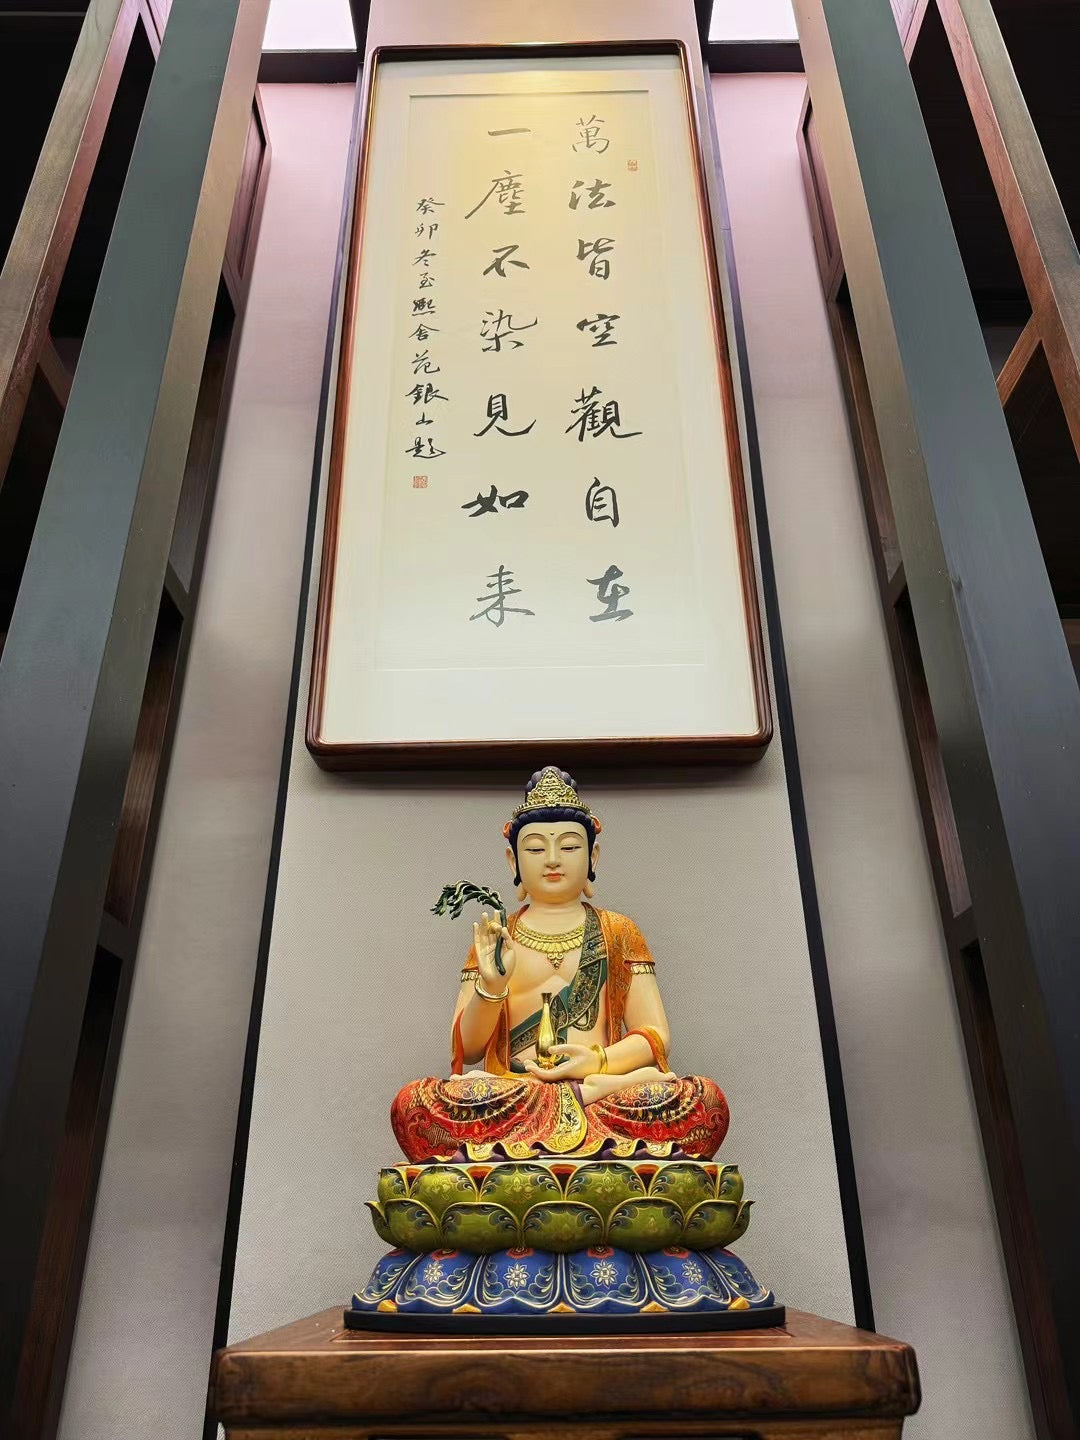 萬法皆空觀自在
一塵不染見如来
癸卯冬至熙舍范銀山題